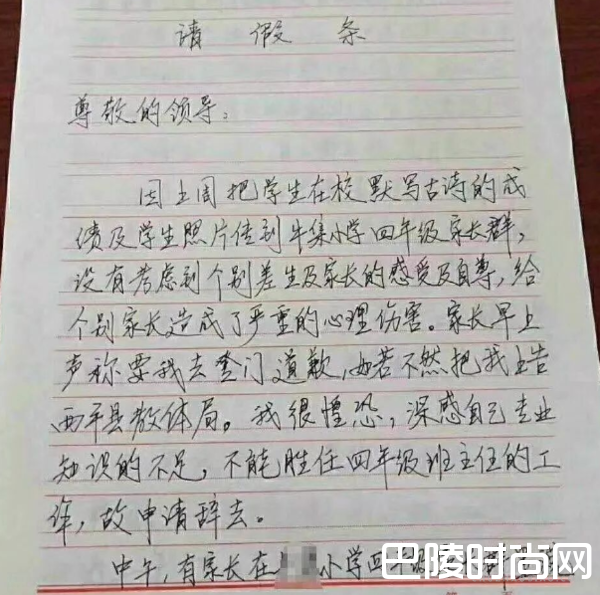 请假条
尊敬的领导:
因上周把学生在校默写古诗的成
绩及学生照片传到牛集小学四年级家长群,
没有考虑到个别差生及家长的感受及自尊,给
个别家长造成了严重的心理伤害。家长早上
声称要我去登门道歉,如若不然把我上告
西平县教体局。我很惶恐,深感自己专业
知识的不足,不能胜任四年级班主任的工
作,故申请辞去。
中午,有家长在 小学四
巴陵时尚网